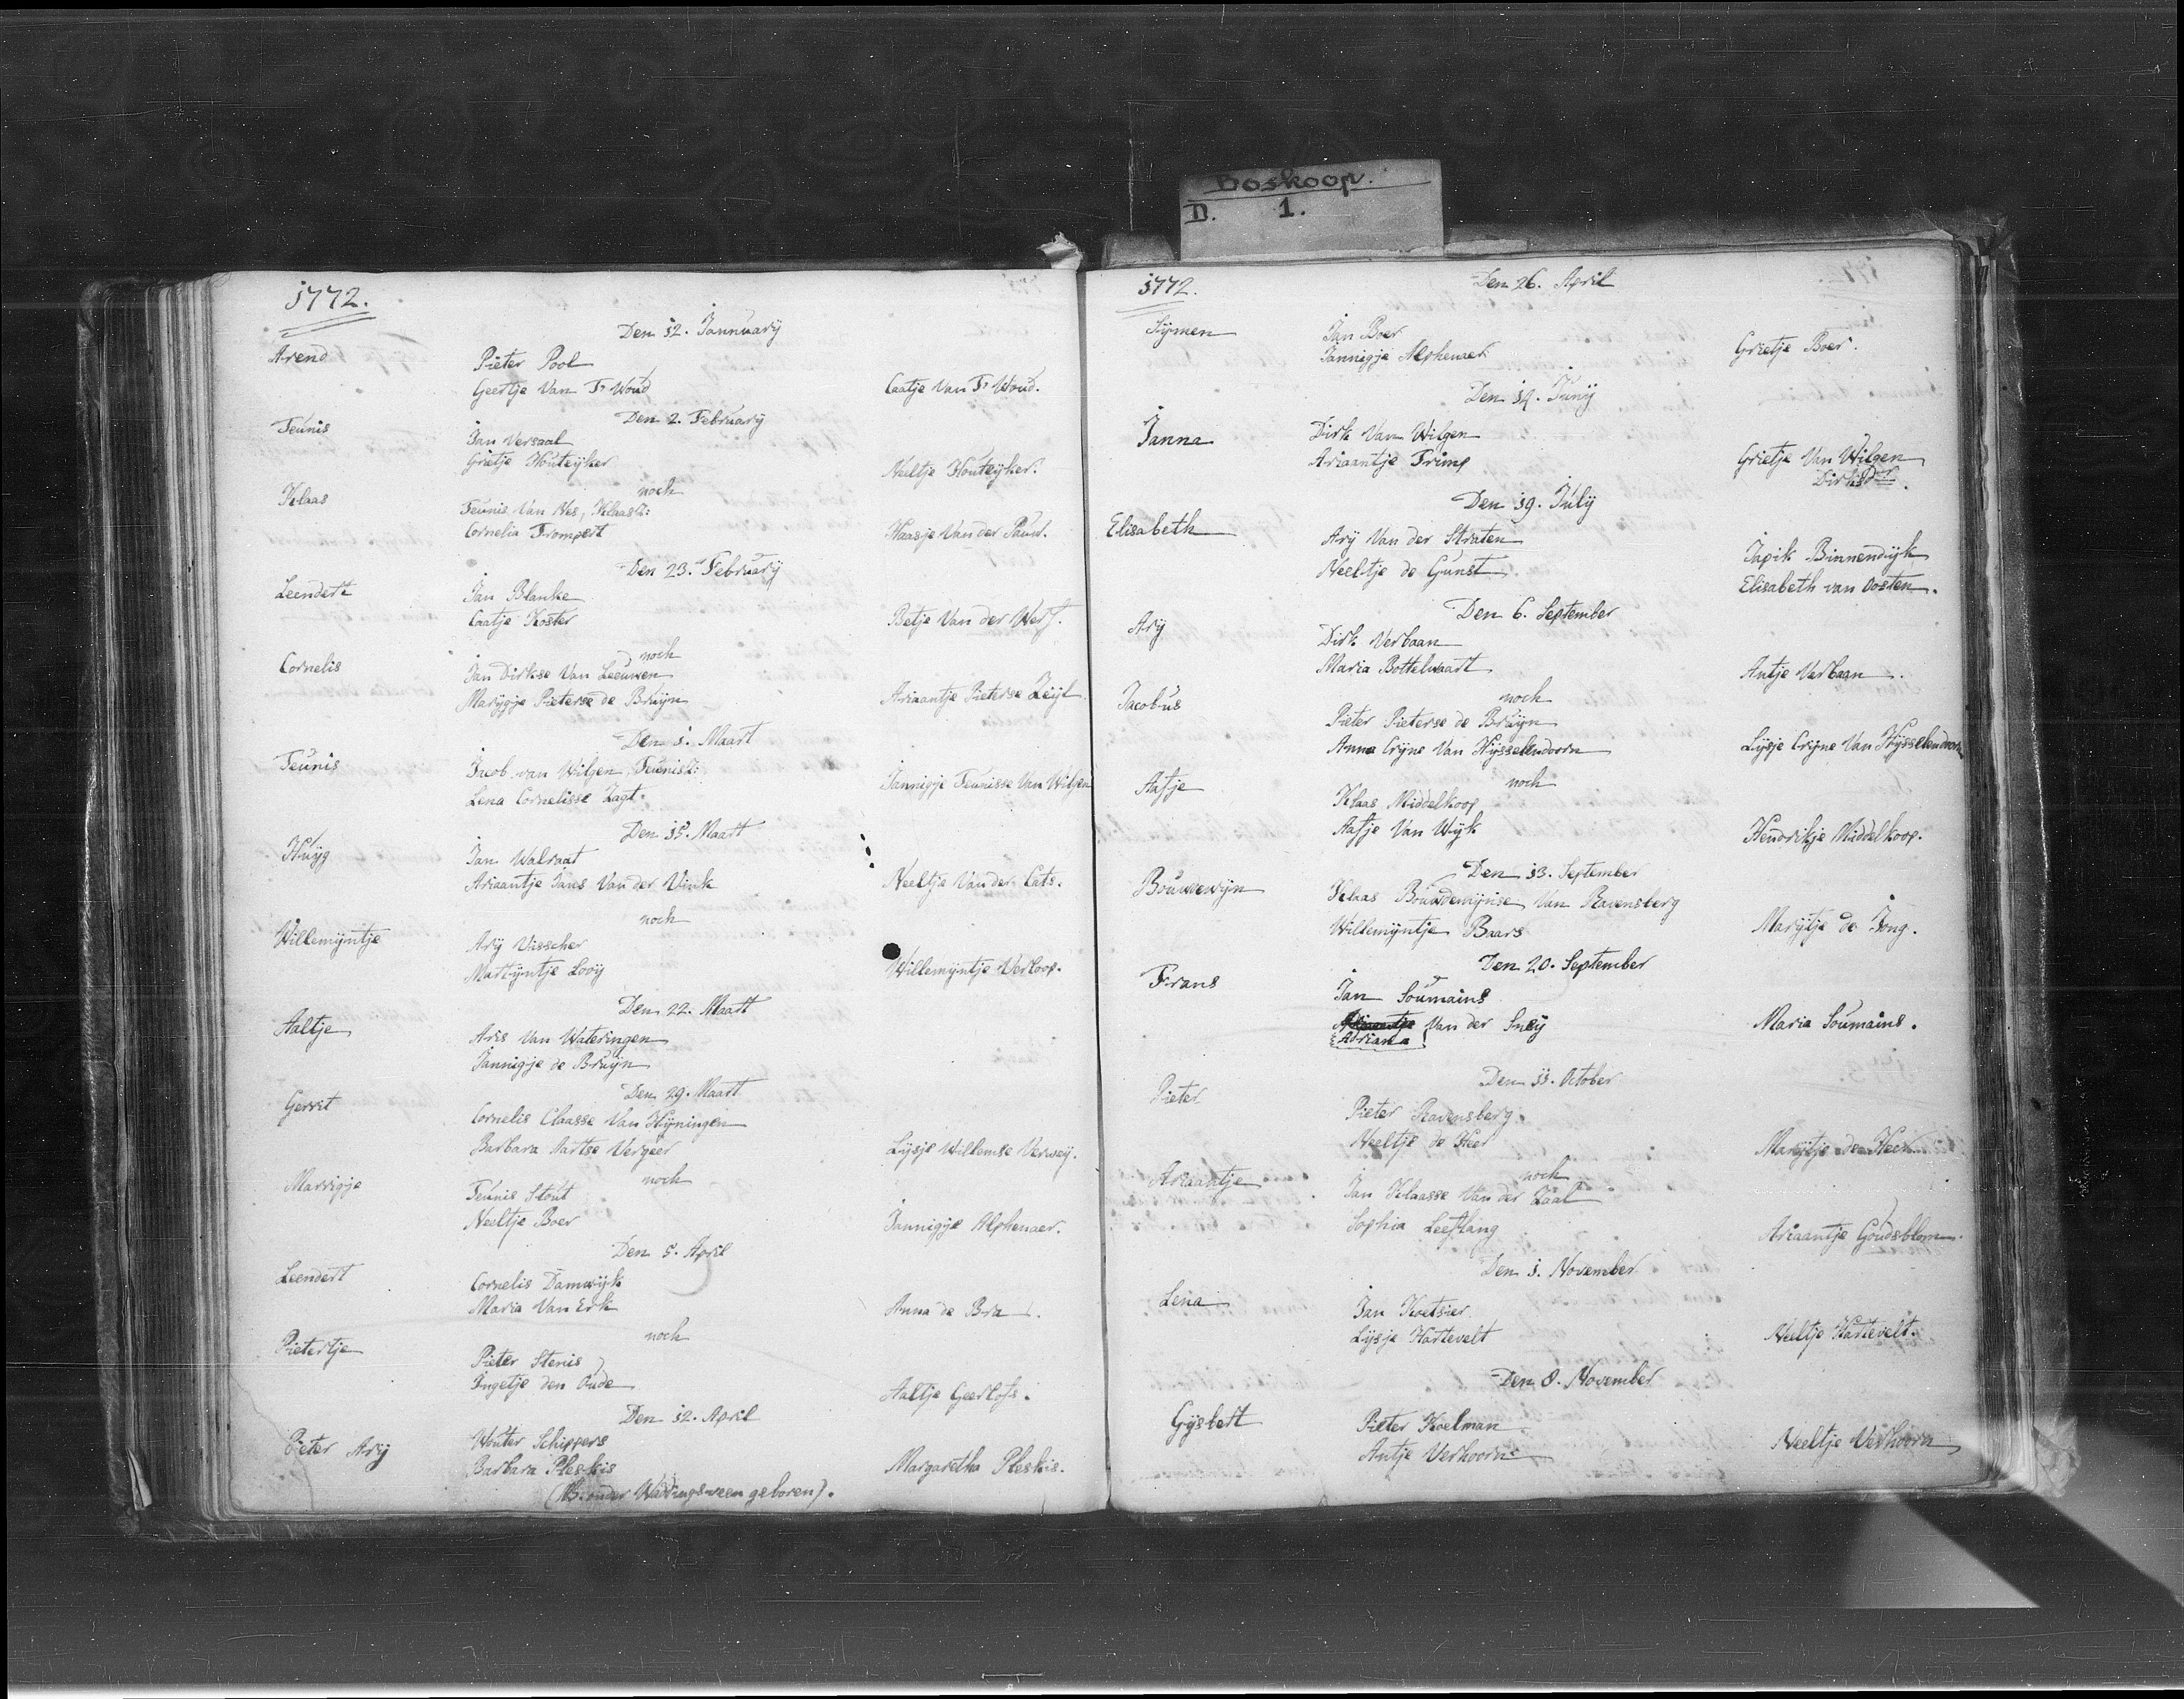 Boskoop.
D. 1.
1772.
Den 12. Jannuarij
Arend
Pieter Pool
Geertje Van Tr Woud
Caatje Van Tr Woud.
Den 2. Februarij
Teunis
Jan Versaal
Grietje Houteijker
Neeltje Houteijker.
noch
Klaas
Teunis Van Nes, Klaasz:
Cornelia Trompert
Haasje Van der Pauw.
Den 23. Februarij
Leendert
Jan Blanke
Caatje Koster
Betje Van der Werf.
noch
Cornelis
Jan Dirkse Van Leeuwen
Marijgje Pieterse de Bruijn
Ariaantje Pieterse Zeijl
Den 1. Maart
Teunis
Jacob van Wilgen, Teunisz:
Lena Cornelisse Zagt.
Jannigje Teunisse Van Wilgen
Den 15. Maart
Huijg
Jan Walraat
Ariaantje Jans Van der Vink
Neeltje Van der Cats.
noch
Willemijntje
Arij Visscher
Martijntje Looij
Willemijntje Verloop.
Den 22. Maart
Aaltje
Aris Van Wateringen
Jannigje de Bruijn
Den 29. Maart
Gerrit
Cornelis Claasse Van Hijningen
Barbara Aartse Vergeer
Lijsje Willemse Verweij.
noch
Marrigje
Teunis Stout
Neeltje Boer
Jannigje Alphenaer.
Den 5. April
Leendert
Cornelis Damwijk
Maria Van Erk
Anna de Bra
noch
Pietertje
Pieter Stenis
Ingetje den Oude
Aaltje Geerlofs.
Den 12. April
Pieter Arij
Wouter Schippers
Barbara Pleskis
Margaretha Pleskis.
(NB. onder Waddingsveen geboren).
1772.
Den 26. April
Sijmen
Jan Boer
Jannigje Alphenaer
Grietje Boer.
Den 14. Junij
Janna
Dirk Van Wilgen
Ariaantje Trimp
Grietje Van Wilgen
Dirksdr.
Den 19. Julij
Elisabeth
Arij Van der Straten
Neeltje de Gunst
Japik Binnendijk
Elisabeth van Oosten.
Den 6. September
Arij
Dirk Verbaan
Maria Bottelwaart
Antje Verbaan.
noch
Jacobus
Pieter Pieterse de Bruijn
Anna Crijne Van Hijsselendoorn
Lijsje Crijne Van Hijsselendoorn
noch
Aafje
Klaas Middelkoop
Aafje Van Wijk
Hendrikje Middelkoop.
Den 13. September
Bouwewijn
Klaas Bouwdewijnse Van Ravensberg
Willemijntje Baars
Marijtje de Jong.
Den 20. September
Frans
Jan Soumains
Ariaantje Van der Sneij
Adriana
Maria Soumains.
Den 11. October
Pieter
Pieter Ravensberg.
Neeltje de Heer
Marijtje de Heer
noch
Ariaantje
Jan Klaasse Van der Zaal
Sophia Leeflang
Ariaantje Goudsblom.
Den 1. November
Lena
Jan Koetsier
Lijsje Hartevelt
Neeltje Hartevelt.
Den 8. November
Gijsbert
Pieter Koelman
Antje Verhoorn
Neeltje Verhoorn